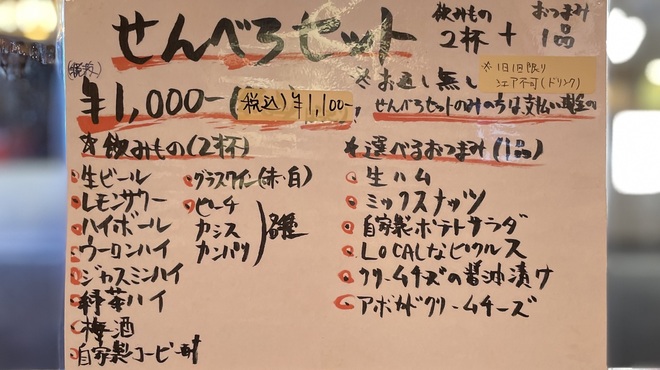 せんべろセット
飲みもの 2杯 + おつまみ 1品
※お通し無し
※1日1回限り
シェア不可(ドリンク)
(税抜)
¥1,000-(税込)¥1,100-
せんべろセットのみの方は支払い現金の
☆飲みもの(2杯)
生ビール
レモンサワー
ハイボール
ウーロンハイ
ジャスミンハイ
緑茶ハイ
梅酒
自家製コーヒー酎
グラスワイン(赤・白)
ピーチ
カシス
カンパリ
各種
★選べるおつまみ(1品)
生ハム
ミックスナッツ
自家製ポテトサラダ
LOCALなピクルス
クリームチーズの醤油漬け
アボカドクリームチーズ